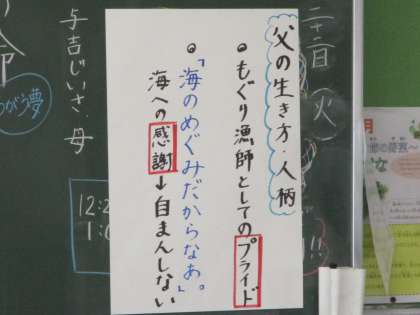 二十二日(火)
父の生き方・人柄
●もぐり漁師としてのプライド
●「海のめぐみだからなあ。」
海への感謝→自まんしない
与吉じいさ・母
命
夢
12:2
1:0
!!